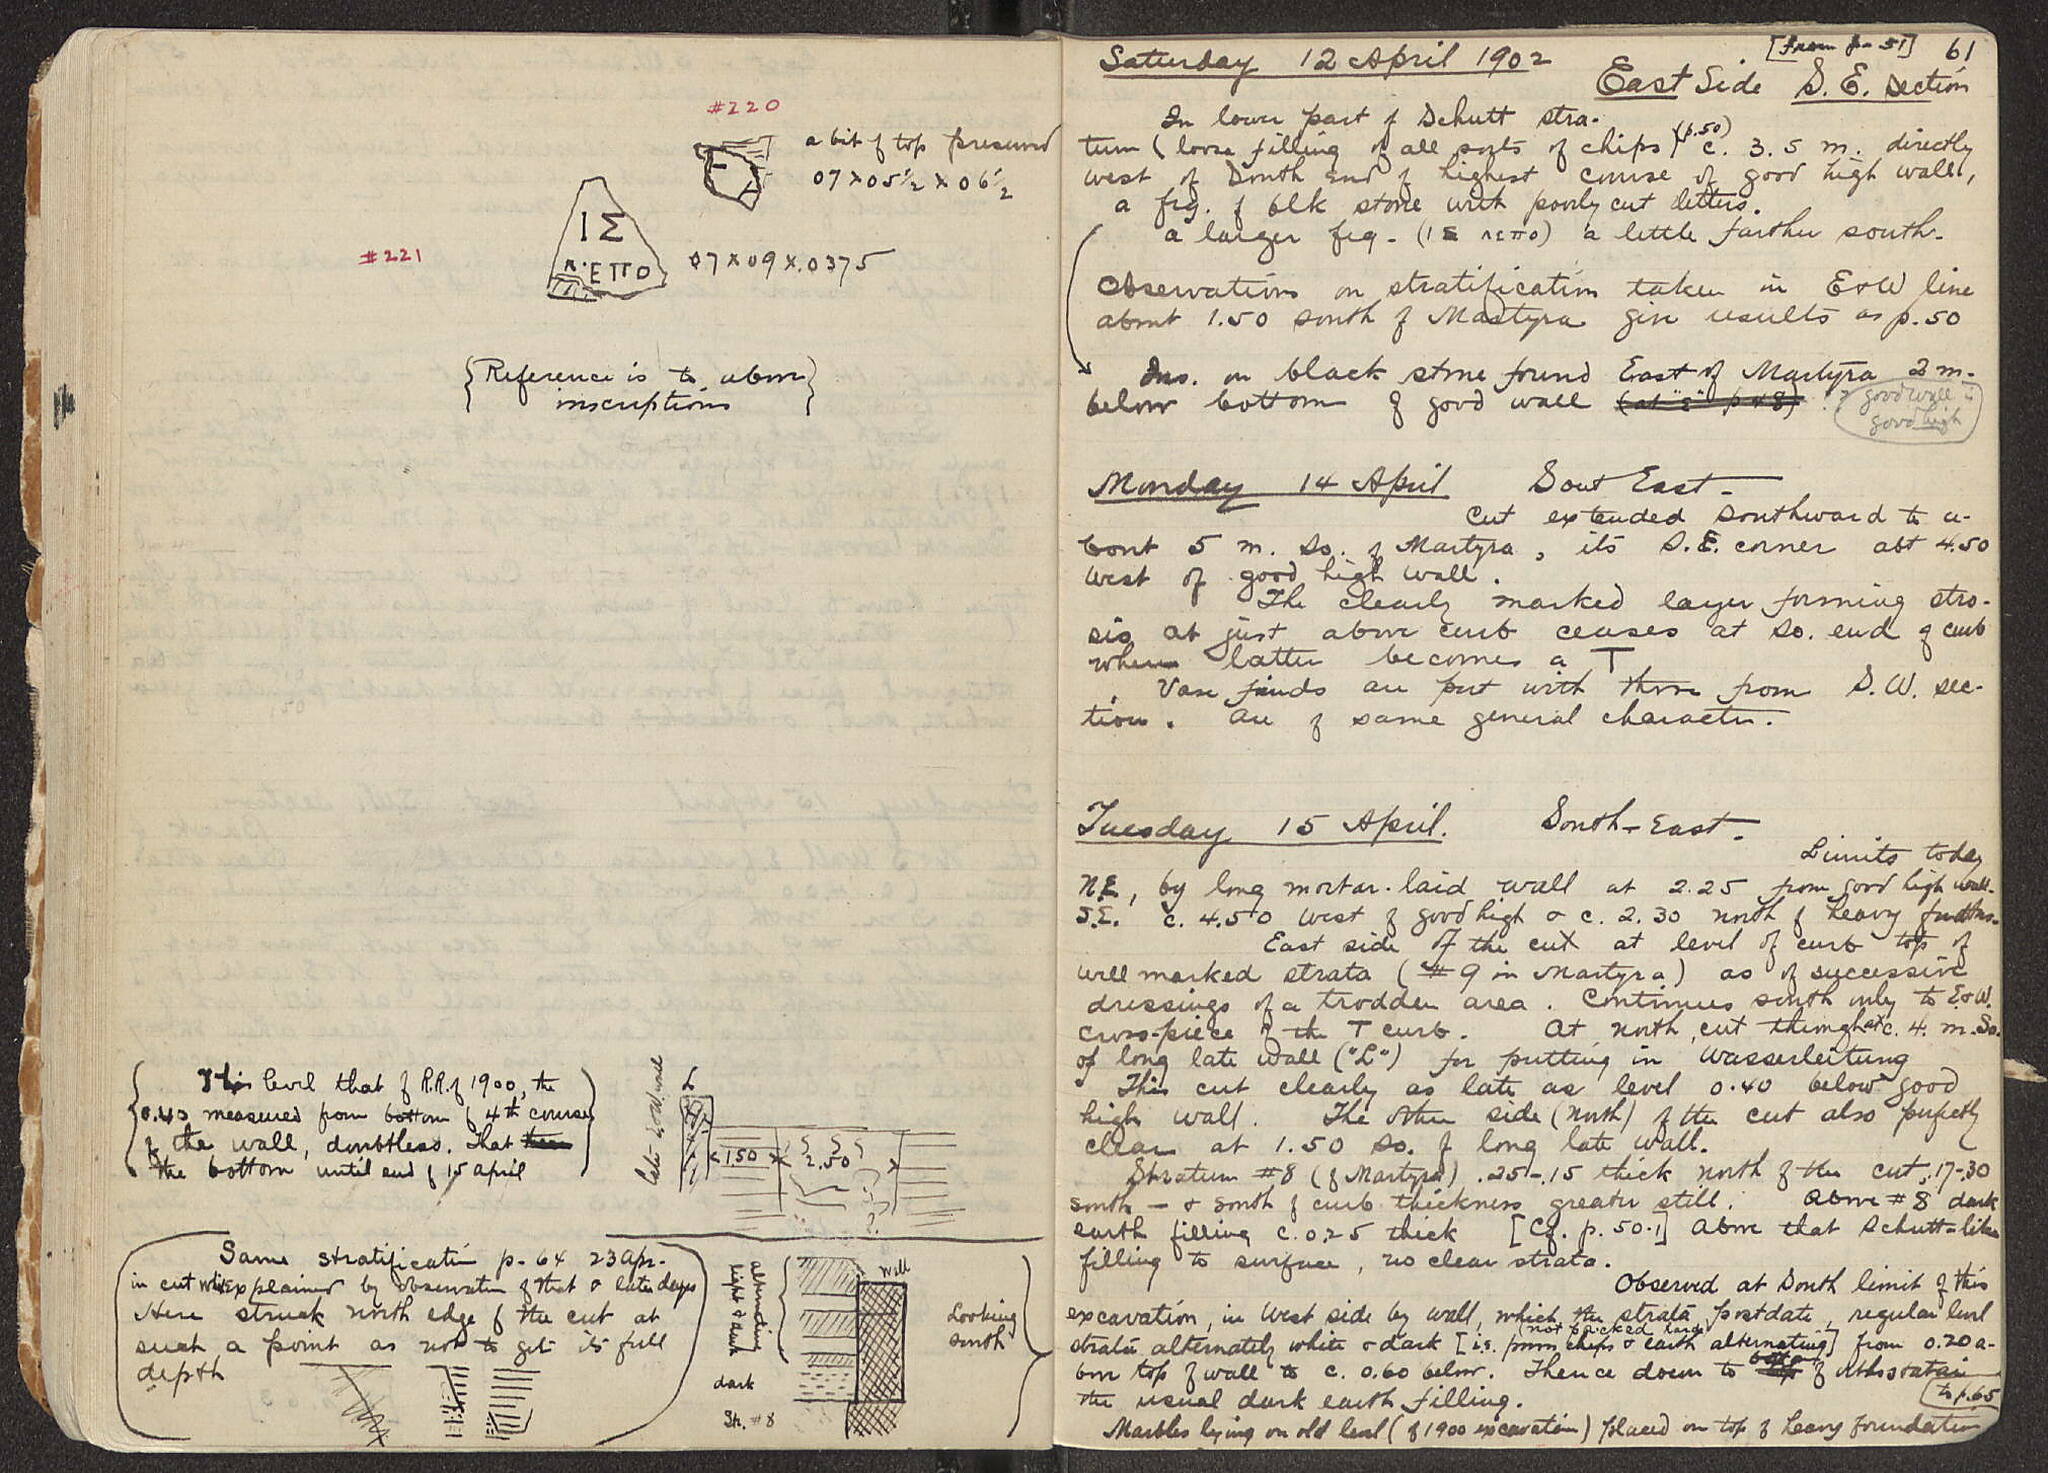 #220
a bit of top preserved
07 x 05½ x 06½
Ι Σ
Λ·ΕΠΠΟ
#221
07 x 09 x .0375
{Reference is to above
inscriptions}
This level that of R.R. of 1900, the
0.40 measured from bottom of 4th course
of the wall, doubtless. That
the bottom until end of 15 April
late E&W wall
L
1.50
2.50
Same stratification p. 64 23 Apr.
in cut explained by observation of that & later days
Here struck north edge of the cut at
such a point as not to get its full
depth
alternating
light & dark
dark
St. #8
wall
Looking
south
[From p. 51] 61
Saturday 12 April 1902
East Side S.E. Section
In lower part of Schutt stra-
tum (loose filling of all sorts of chips) (p.50) c. 3.5 m. directly
west of South end of highest course of good high wall,
a frg. of blk stone with poorly cut letters.
a larger frg. (ΙΣ ΛΕΠΟ) a little farther south.
Observations on stratification taken in E&W line
about 1.50 south of Martyra give results as p. 50
Ins. on black stone found East of Martyra 2 m.
below bottom of good wall (at "Σ" p 48)
good wall is
good high
Monday 14 April Sout East-
Cut extended southward to a-
bout 5 m. So. of Martyra, its S.E. corner abt 4.50
west of good high wall.
The clearly marked layer forming stro-
sis at just above curb ceases at So. end of curb
where latter becomes a T
Vase finds are put with those from S.W. sec-
tion. Are of same general character.
Tuesday 15 April. South-East-
Limits today
N.E, by long mortar-laid wall at 2.25 from good high wall.
S.E. c. 4.50 west of good high & c. 2.30 north of heavy
East side of the cut at level of curb top of
well marked strata (#9 in Martyra) as of successive
dressings of a trodden area. Continues south only to E&W.
cross-piece of the T curb. At north, cut through at c. 4. m. So.
of long late wall ("L") for putting in Wasserleitung
This cut clearly as late as level 0.40 below good
high wall. The other side (north) of the cut also perfectly
clear at 1.50 So. of long late wall.
Stratum #8 (of Martyra) .25-.15 thick north of the cut, .17-.30
south - & south of curb thickness greater still. Above #8 dark
earth filling c. 0.25 thick [Cf. p. 50.1] Above that Schutt-like
filling to surface, no clear strata.
Observed at South limit of this
excavation, in west side by wall, which the strata postdate, regular level
(not packed hard)
strata alternately white & dark [i.e. poros chips & earth alternating] from 0.20 a-
bove top of wall to c. 0.60 below. Thence down to of
the usual dark earth filling.
to p. 65
Marbles lying on old level (of 1900 excavation) placed on top of heavy foundation